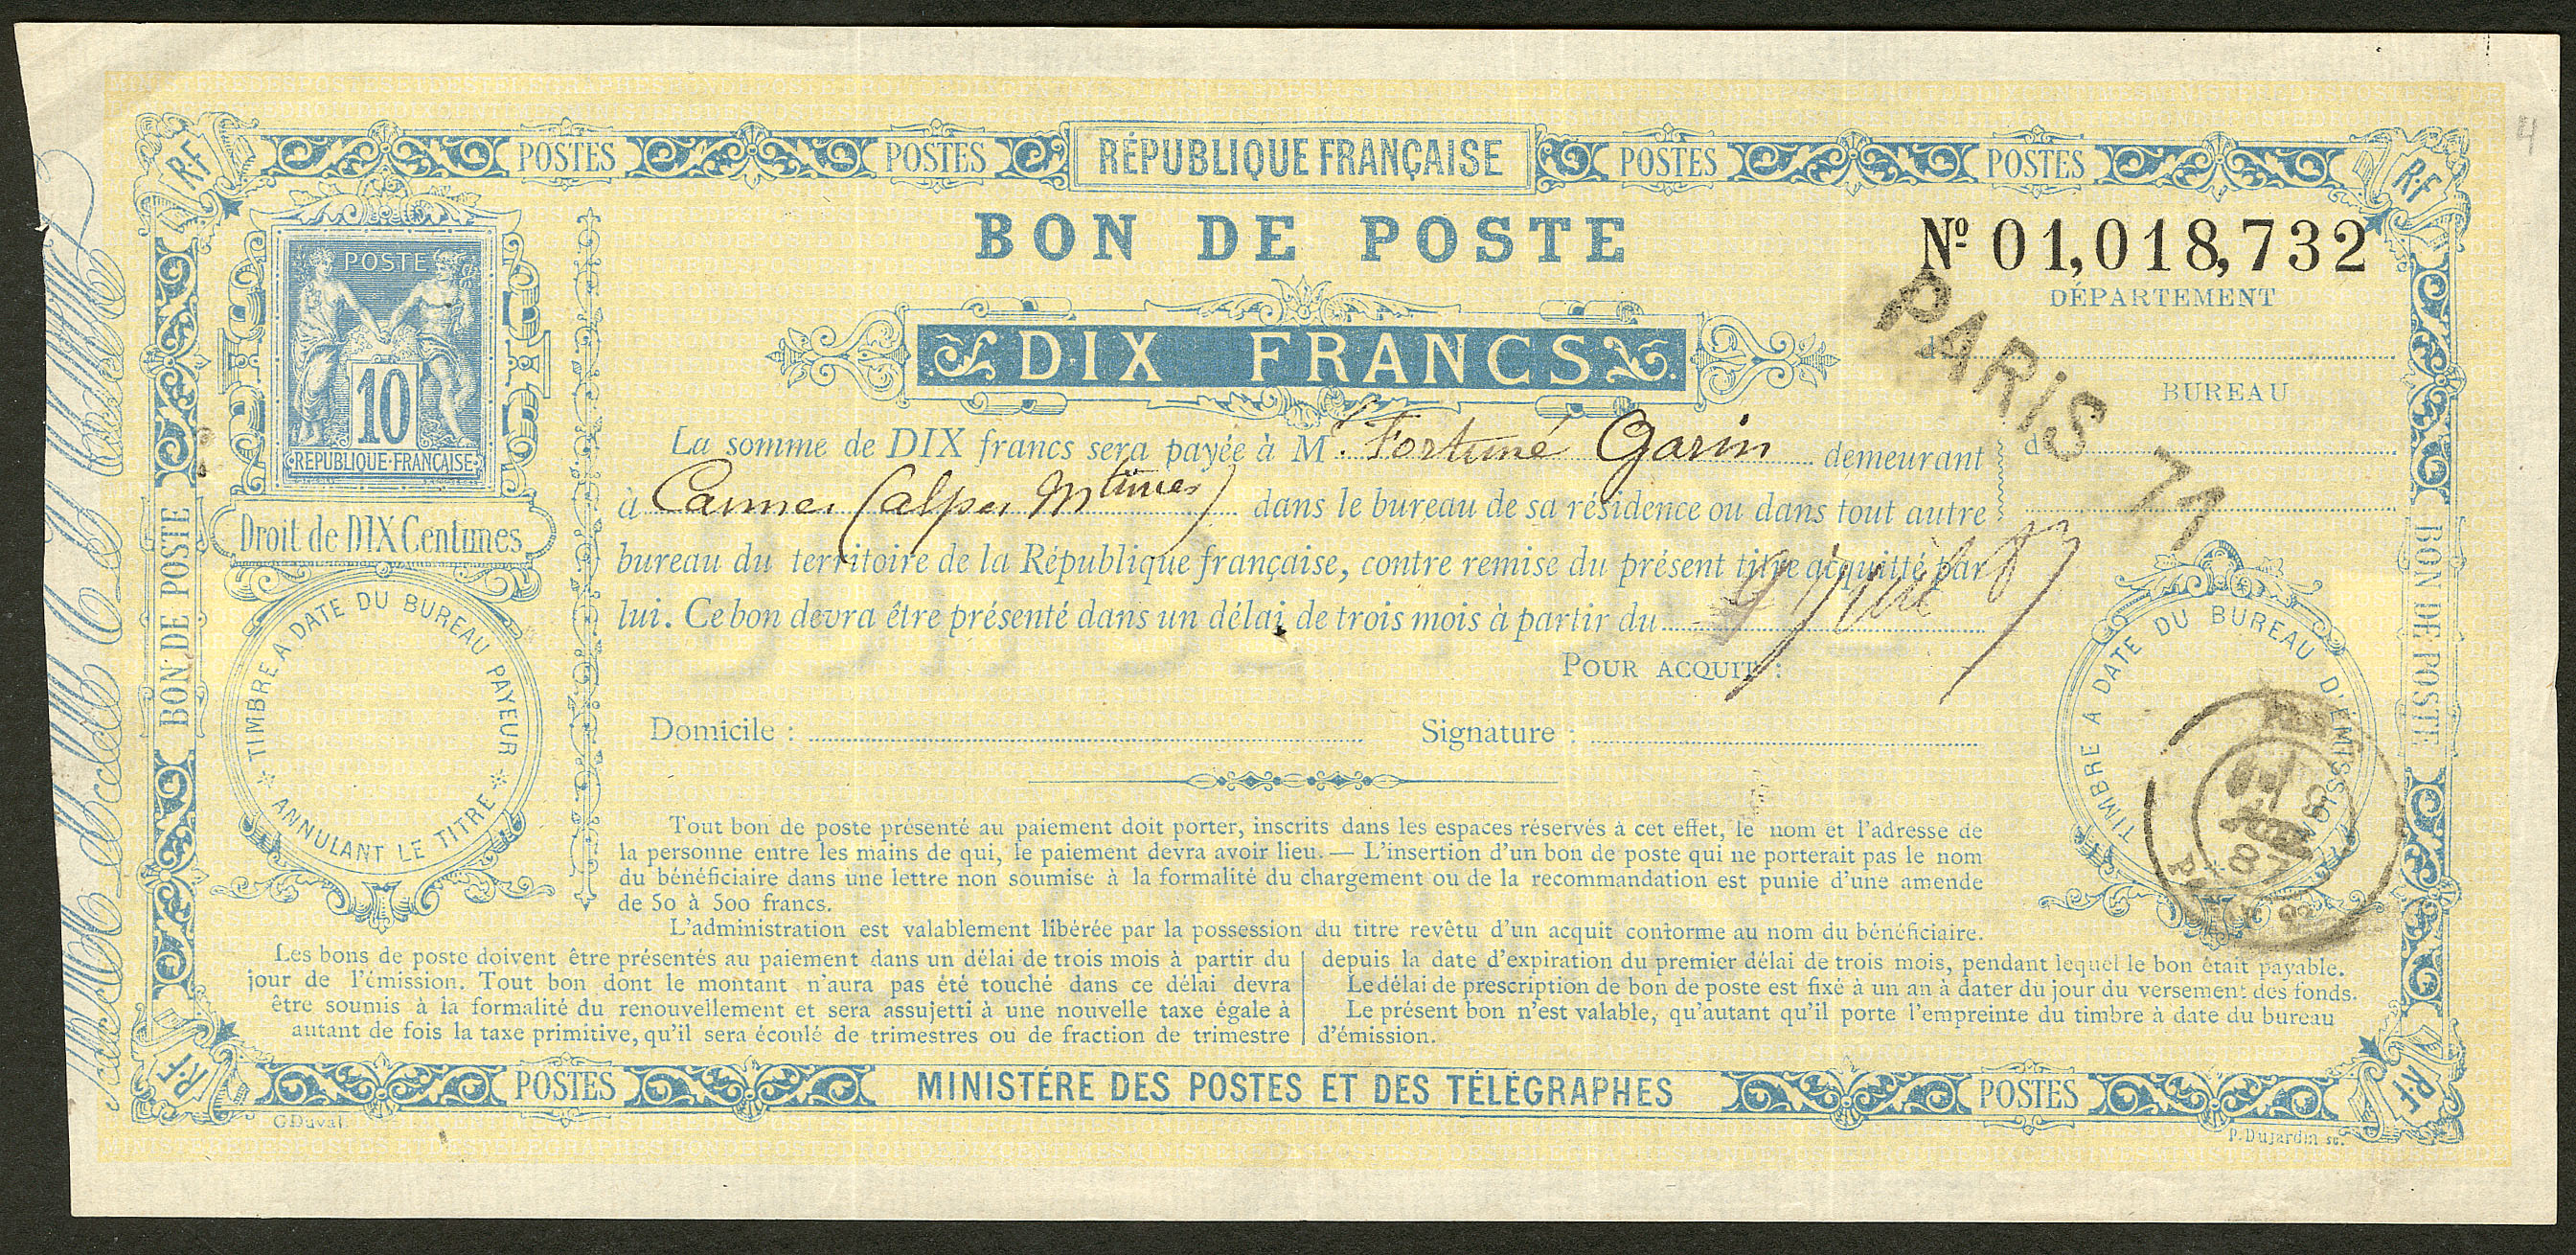 POSTES POSTES RÉPUBLIQUE FRANÇAISE POSTES POSTES
R·F
R·F
BON DE POSTE
Nº 01,018,732
DÉPARTEMENT
POSTE
10
REPUBLIQUE·FRANÇAISE
DIX FRANCS
PARIS 71
d
BUREAU
d
La somme de DIX francs sera payée à M. Fortuné Garin demeurant
à Cannes (alpes Mtimes) dans le bureau de sa résidence ou dans tout autre
bureau du territoire de la République française, contre remise du présent titre acquitté par
lui. Ce bon devra être présenté dans un délai de trois mois à partir du
POUR ACQUIT :
Domicile :
Signature :
Droit de DIX Centimes
TIMBRE A DATE DU BUREAU PAYEUR
ANNULANT LE TITRE
TIMBRE A DATE DU BUREAU D'ÉMISSION
87
BON DE POSTE
BON DE POSTE
Tout bon de poste présenté au paiement doit porter, inscrits dans les espaces réservés à cet effet, le nom et l'adresse de
la personne entre les mains de qui, le paiement devra avoir lieu. — L'insertion d'un bon de poste qui ne porterait pas le nom
du bénéficiaire dans une lettre non soumise à la formalité du chargement ou de la recommandation est punie d'une amende
de 50 à 500 francs.
L'administration est valablement libérée par la possession du titre revêtu d'un acquit conforme au nom du bénéficiaire.
Les bons de poste doivent être présentés au paiement dans un délai de trois mois à partir du
jour de l'émission. Tout bon dont le montant n'aura pas été touché dans ce délai devra
être soumis à la formalité du renouvellement et sera assujetti à une nouvelle taxe égale à
autant de fois la taxe primitive, qu'il sera écoulé de trimestres ou de fraction de trimestre
depuis la date d'expiration du premier délai de trois mois, pendant lequel le bon était payable.
Le délai de prescription de bon de poste est fixé à un an à dater du jour du versement des fonds.
Le présent bon n'est valable, qu'autant qu'il porte l'empreinte du timbre à date du bureau
d'émission.
R·F
R·F
POSTES MINISTÉRE DES POSTES ET DES TÉLÉGRAPHES POSTES
G Duval.
P. Dujardin sc.
4